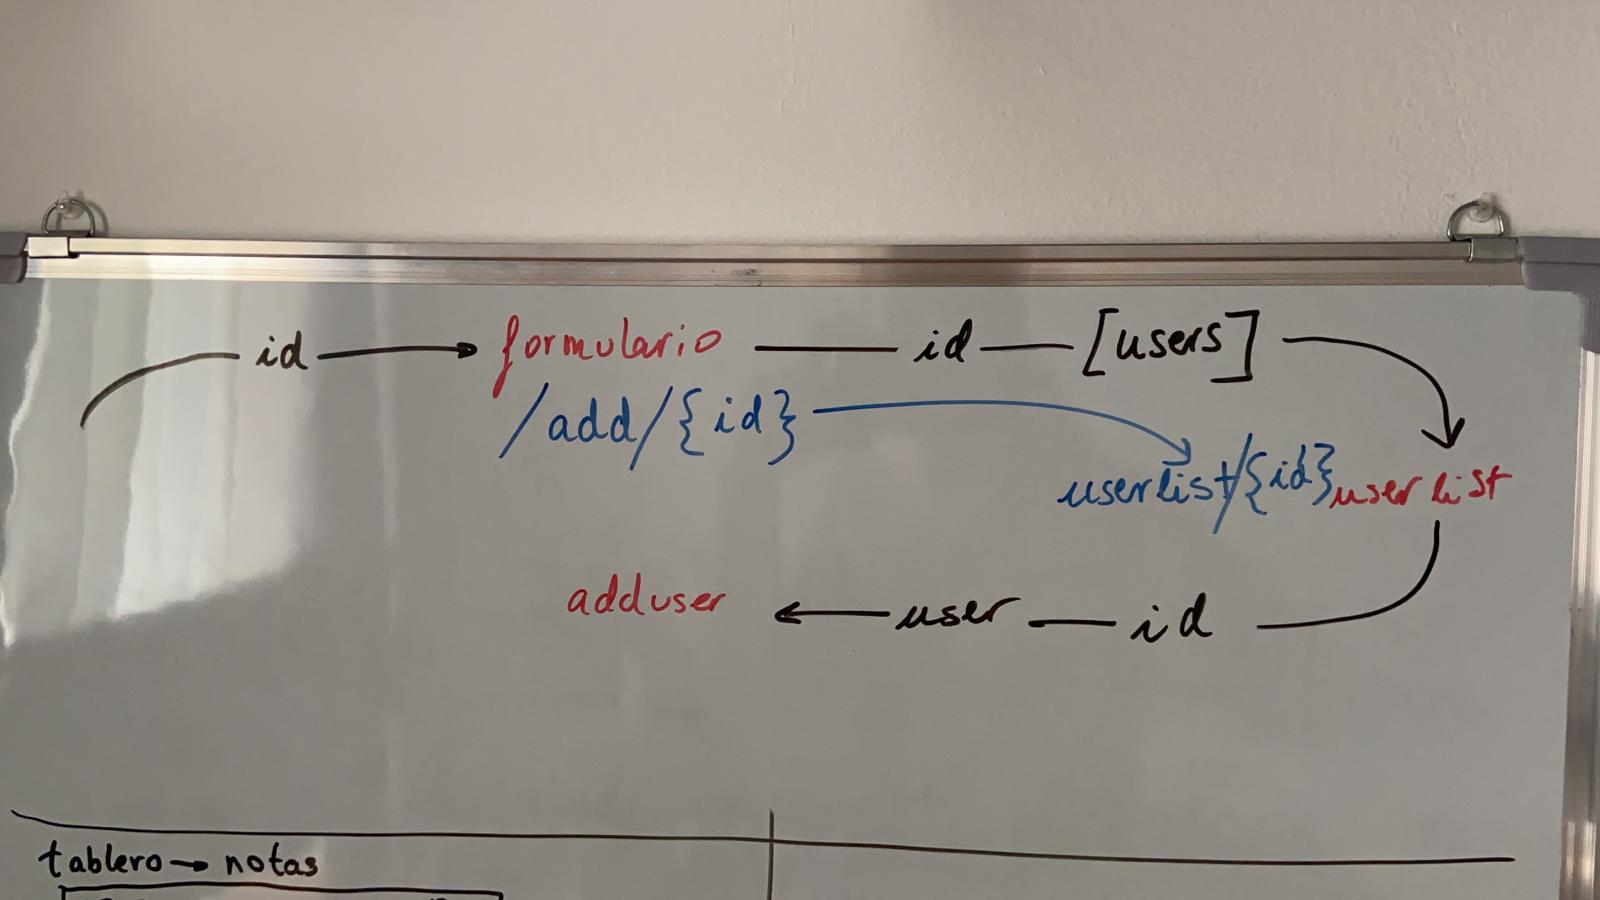 id → formulario — id — [users]
/add/{id}
userlist/{id} user list
adduser ← user — id
tablero → notas